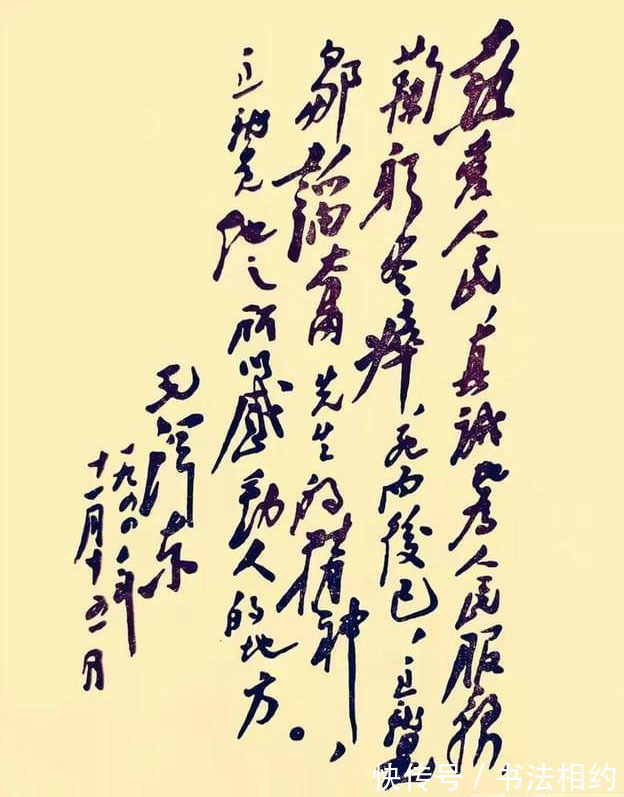 熱愛人民，真誠地為人民服務
鞠躬尽瘁，死而後已，这就是
鄒韜奮先生的精神，
这就是他之所以感動人的地方。
毛澤东
一九四四年
十一月十五日
快传号 / 书法相约